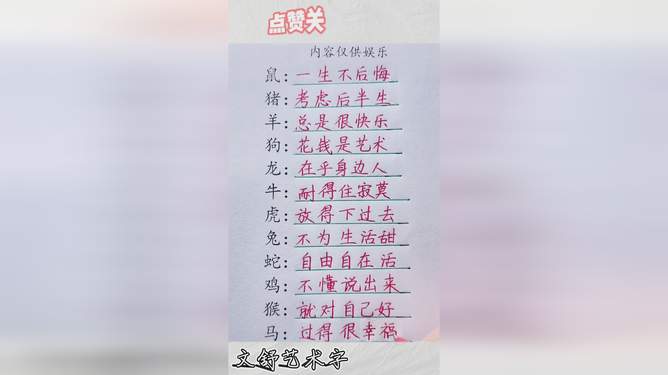 点赞关
内容仅供娱乐
鼠：一生不后悔
猪：考虑后半生
羊：总是很快乐
狗：花钱是艺术
龙：在乎身边人
牛：耐得住寂寞
虎：放得下过去
兔：不为生活甜
蛇：自由自在活
鸡：不懂说出来
猴：就对自己好
马：过得很幸福
文舒艺术字